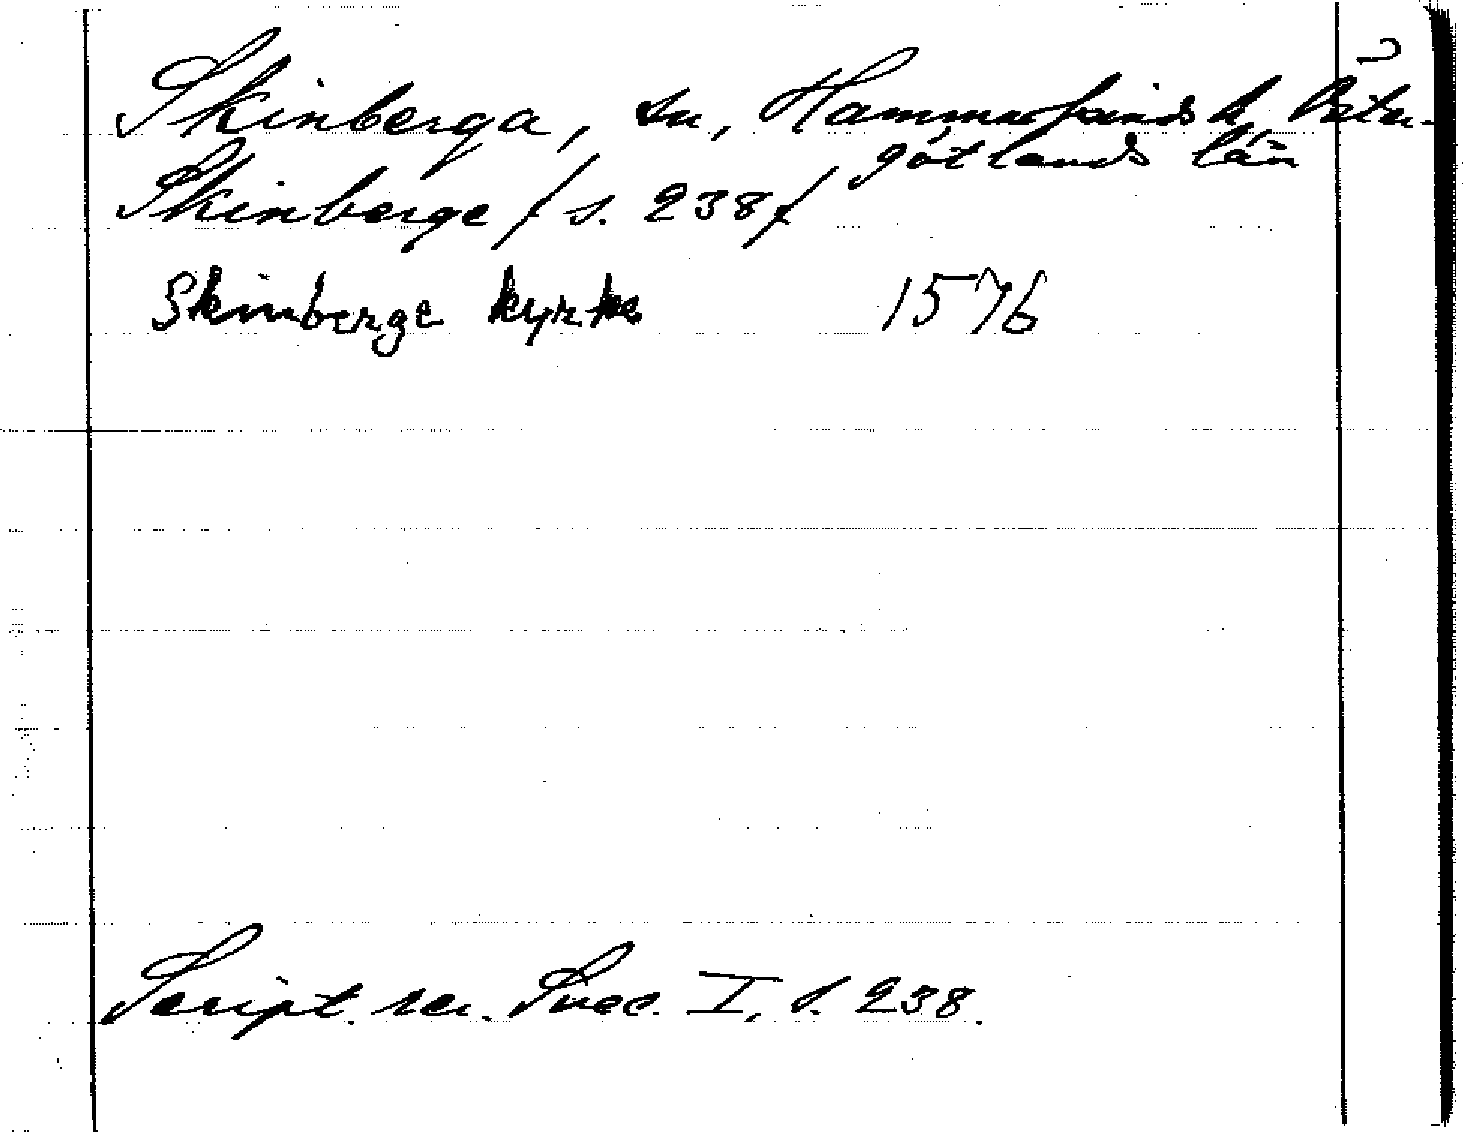 Skinberga, sn, Hammarkinds h, Öster-
götlands län
Skinberge / s. 238 /
Skinberge kyrka 1576
Script. rer. Suec. I, s. 238.